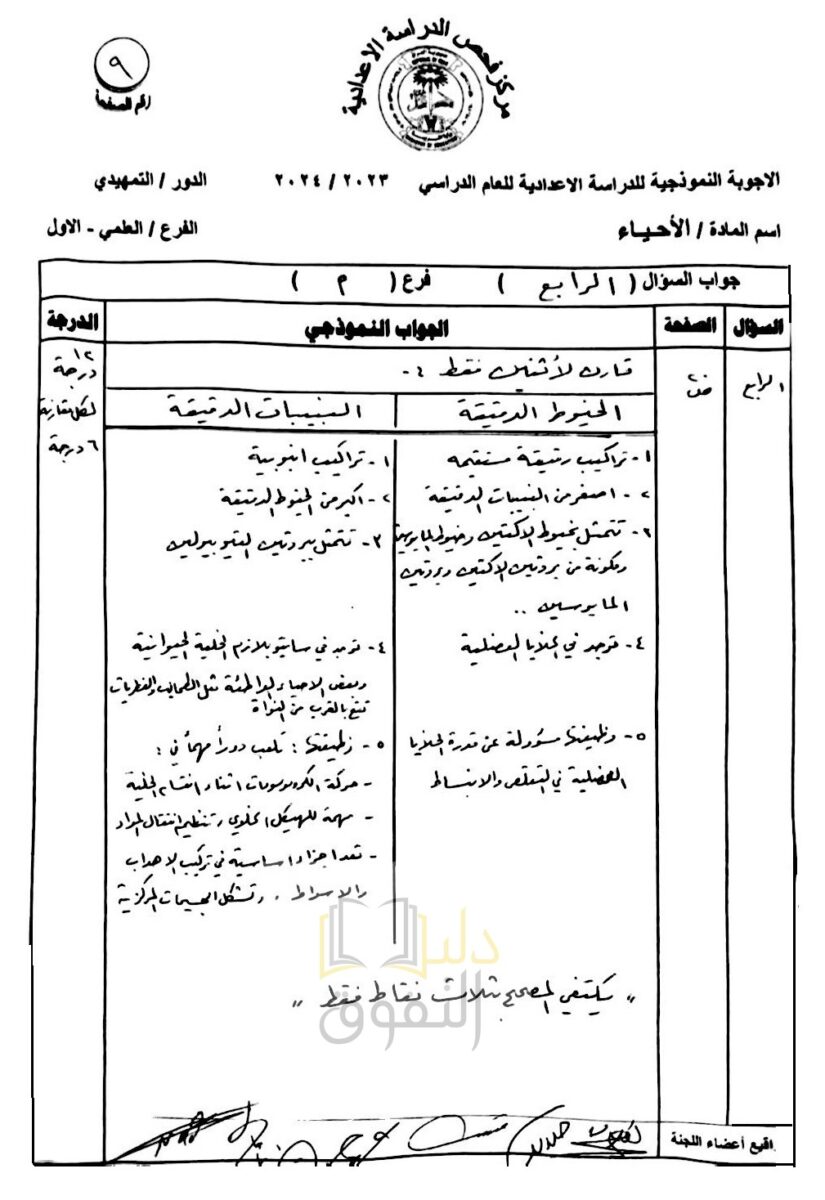 مركز فحص الدراسة الاعدادية
٩
رقم الصفحة
الاجوبة النموذجية للدراسة الاعدادية للعام الدراسي ٢٠٢٣ / ٢٠٢٤ الدور / التمهيدي
اسم المادة / الأحياء الفرع / العلمي - الاول
جواب السؤال ( الرابع ) فرع ( م )
السؤال الصفحة الجواب النموذجي الدرجة
الرابع
قارن لأثنين فقط :-
١٢ درجة
لكل مقارنة
٦ درجة
الخيوط الدقيقة
١- تراكيب رقيقة مستقيمه
٢- اصغر من النبيبات الدقيقة
٣- تتمثل بخيوط الاكتين وخيوط المايوسين
ومكونة من بروتين الاكتين وبروتين
المايوسين ..
٤- توجد في الخلايا العضلية
٥- وظيفتها مسؤولة عن قدرة الخلايا
العضلية في التقلص والانبساط
النبيبات الدقيقة
١- تراكيب انبوبية
٢- اكبر من الخيوط الدقيقة
٣- تتمثل ببروتين التيوبيولين
٤- توجد في سايتوبلازم الخلية الحيوانية
وبعض الاحياء الواطئة مثل الطحالب والفطريات
تقع بالقرب من النواة
٥- وظيفتها : تلعب دوراً مهماً في :
- حركة الكروموسومات اثناء انقسام الخلية
- مهمة للهيكل الخلوي وتنظيم انتقال المواد
- تعد اجزاء اساسية في تركيب الاهداب
والاسواط . وتشكل الجسيمات المركزية
" يكتفي المصحح بثلاث نقاط فقط "
دليل
التفوق
اقيع أعضاء اللجنة